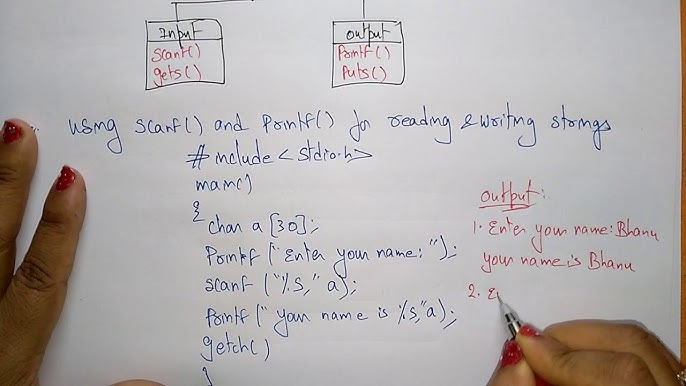 Input
scanf()
gets()
output
Printf()
Puts()
using scanf() and Printf() for reading & writing strings
#include<stdio.h>
main()
{
char a[30];
Printf("Enter your name: ");
scanf("%s," a);
Printf("your name is %s," a);
getch()
}
output:
1. Enter your name: Bhanu
your name is Bhanu
2. E